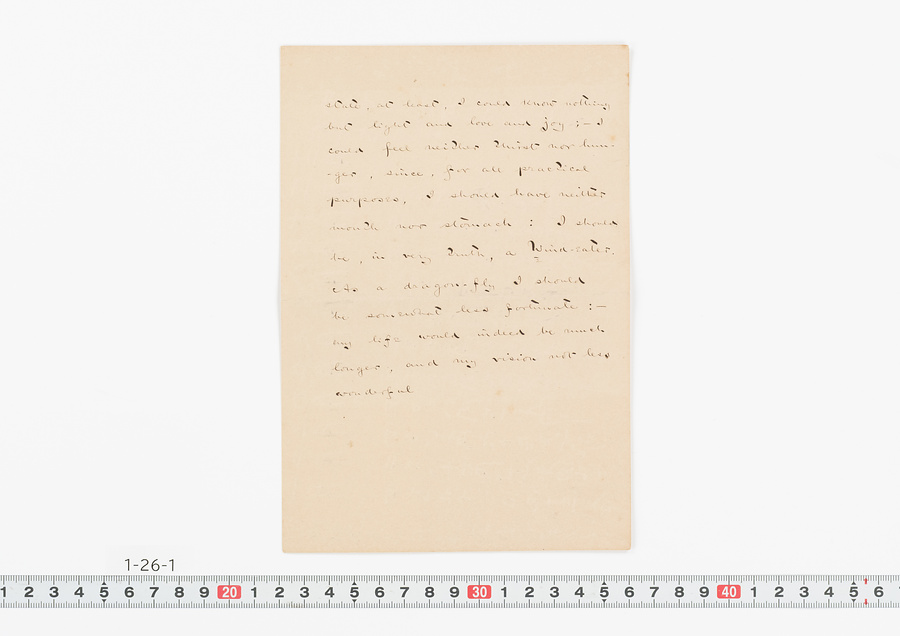 state, at least, I could know nothing
but light and love and joy ;— I
could feel neither thirst nor hun-
-ger, since, for all practical
purposes, I should have neither
mouth nor stomach : I should
be, in very truth, a Wind-eater.
As a dragon-fly I should
be somewhat less fortunate :—
my life would indeed be much
longer, and my vision not less
wonderful
1-26-1
1 2 3 4 5 6 7 8 9 20 1 2 3 4 5 6 7 8 9 30 1 2 3 4 5 6 7 8 9 40 1 2 3 4 5 6 7